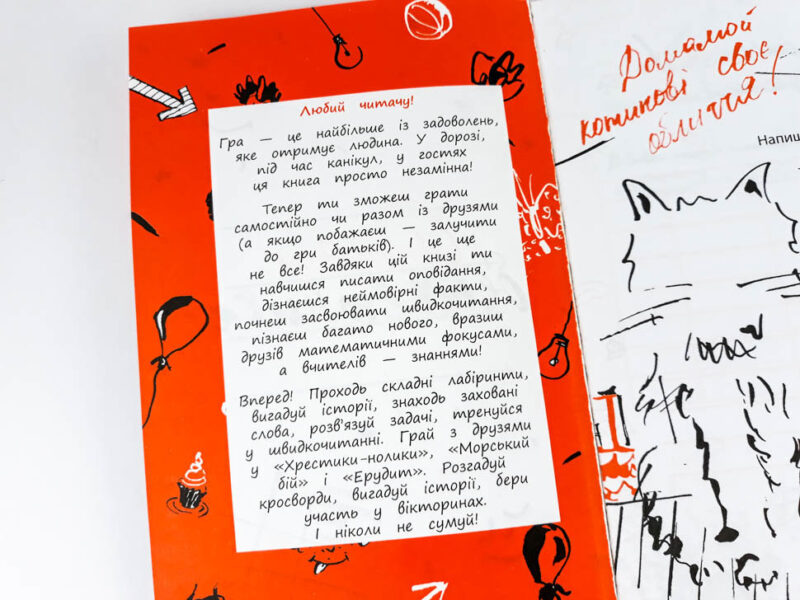 Любий читачу!
Гра — це найбільше із задоволень,
яке отримує людина. У дорозі,
під час канікул, у гостях
ця книга просто незамінна!
Тепер ти зможеш грати
самостійно чи разом із друзями
(а якщо побажаєш — залучити
до гри батьків). І це ще
не все! Завдяки цій книзі ти
навчишся писати оповідання,
дізнаєшся неймовірні факти,
почнеш засвоювати швидкочитання,
пізнаєш багато нового, вразиш
друзів математичними фокусами,
а вчителів — знаннями!
Вперед! Проходь складні лабіринти,
вигадуй історії, знаходь заховані
слова, розв'язуй задачі, тренуйся
у швидкочитанні. Грай з друзями
у «Хрестики-нолики», «Морський
бій» і «Ерудит». Розгадуй
кросворди, вигадуй історії, бери
участь у вікторинах.
І ніколи не сумуй!
Домалюй
котикові своє
обличчя!
Напиш